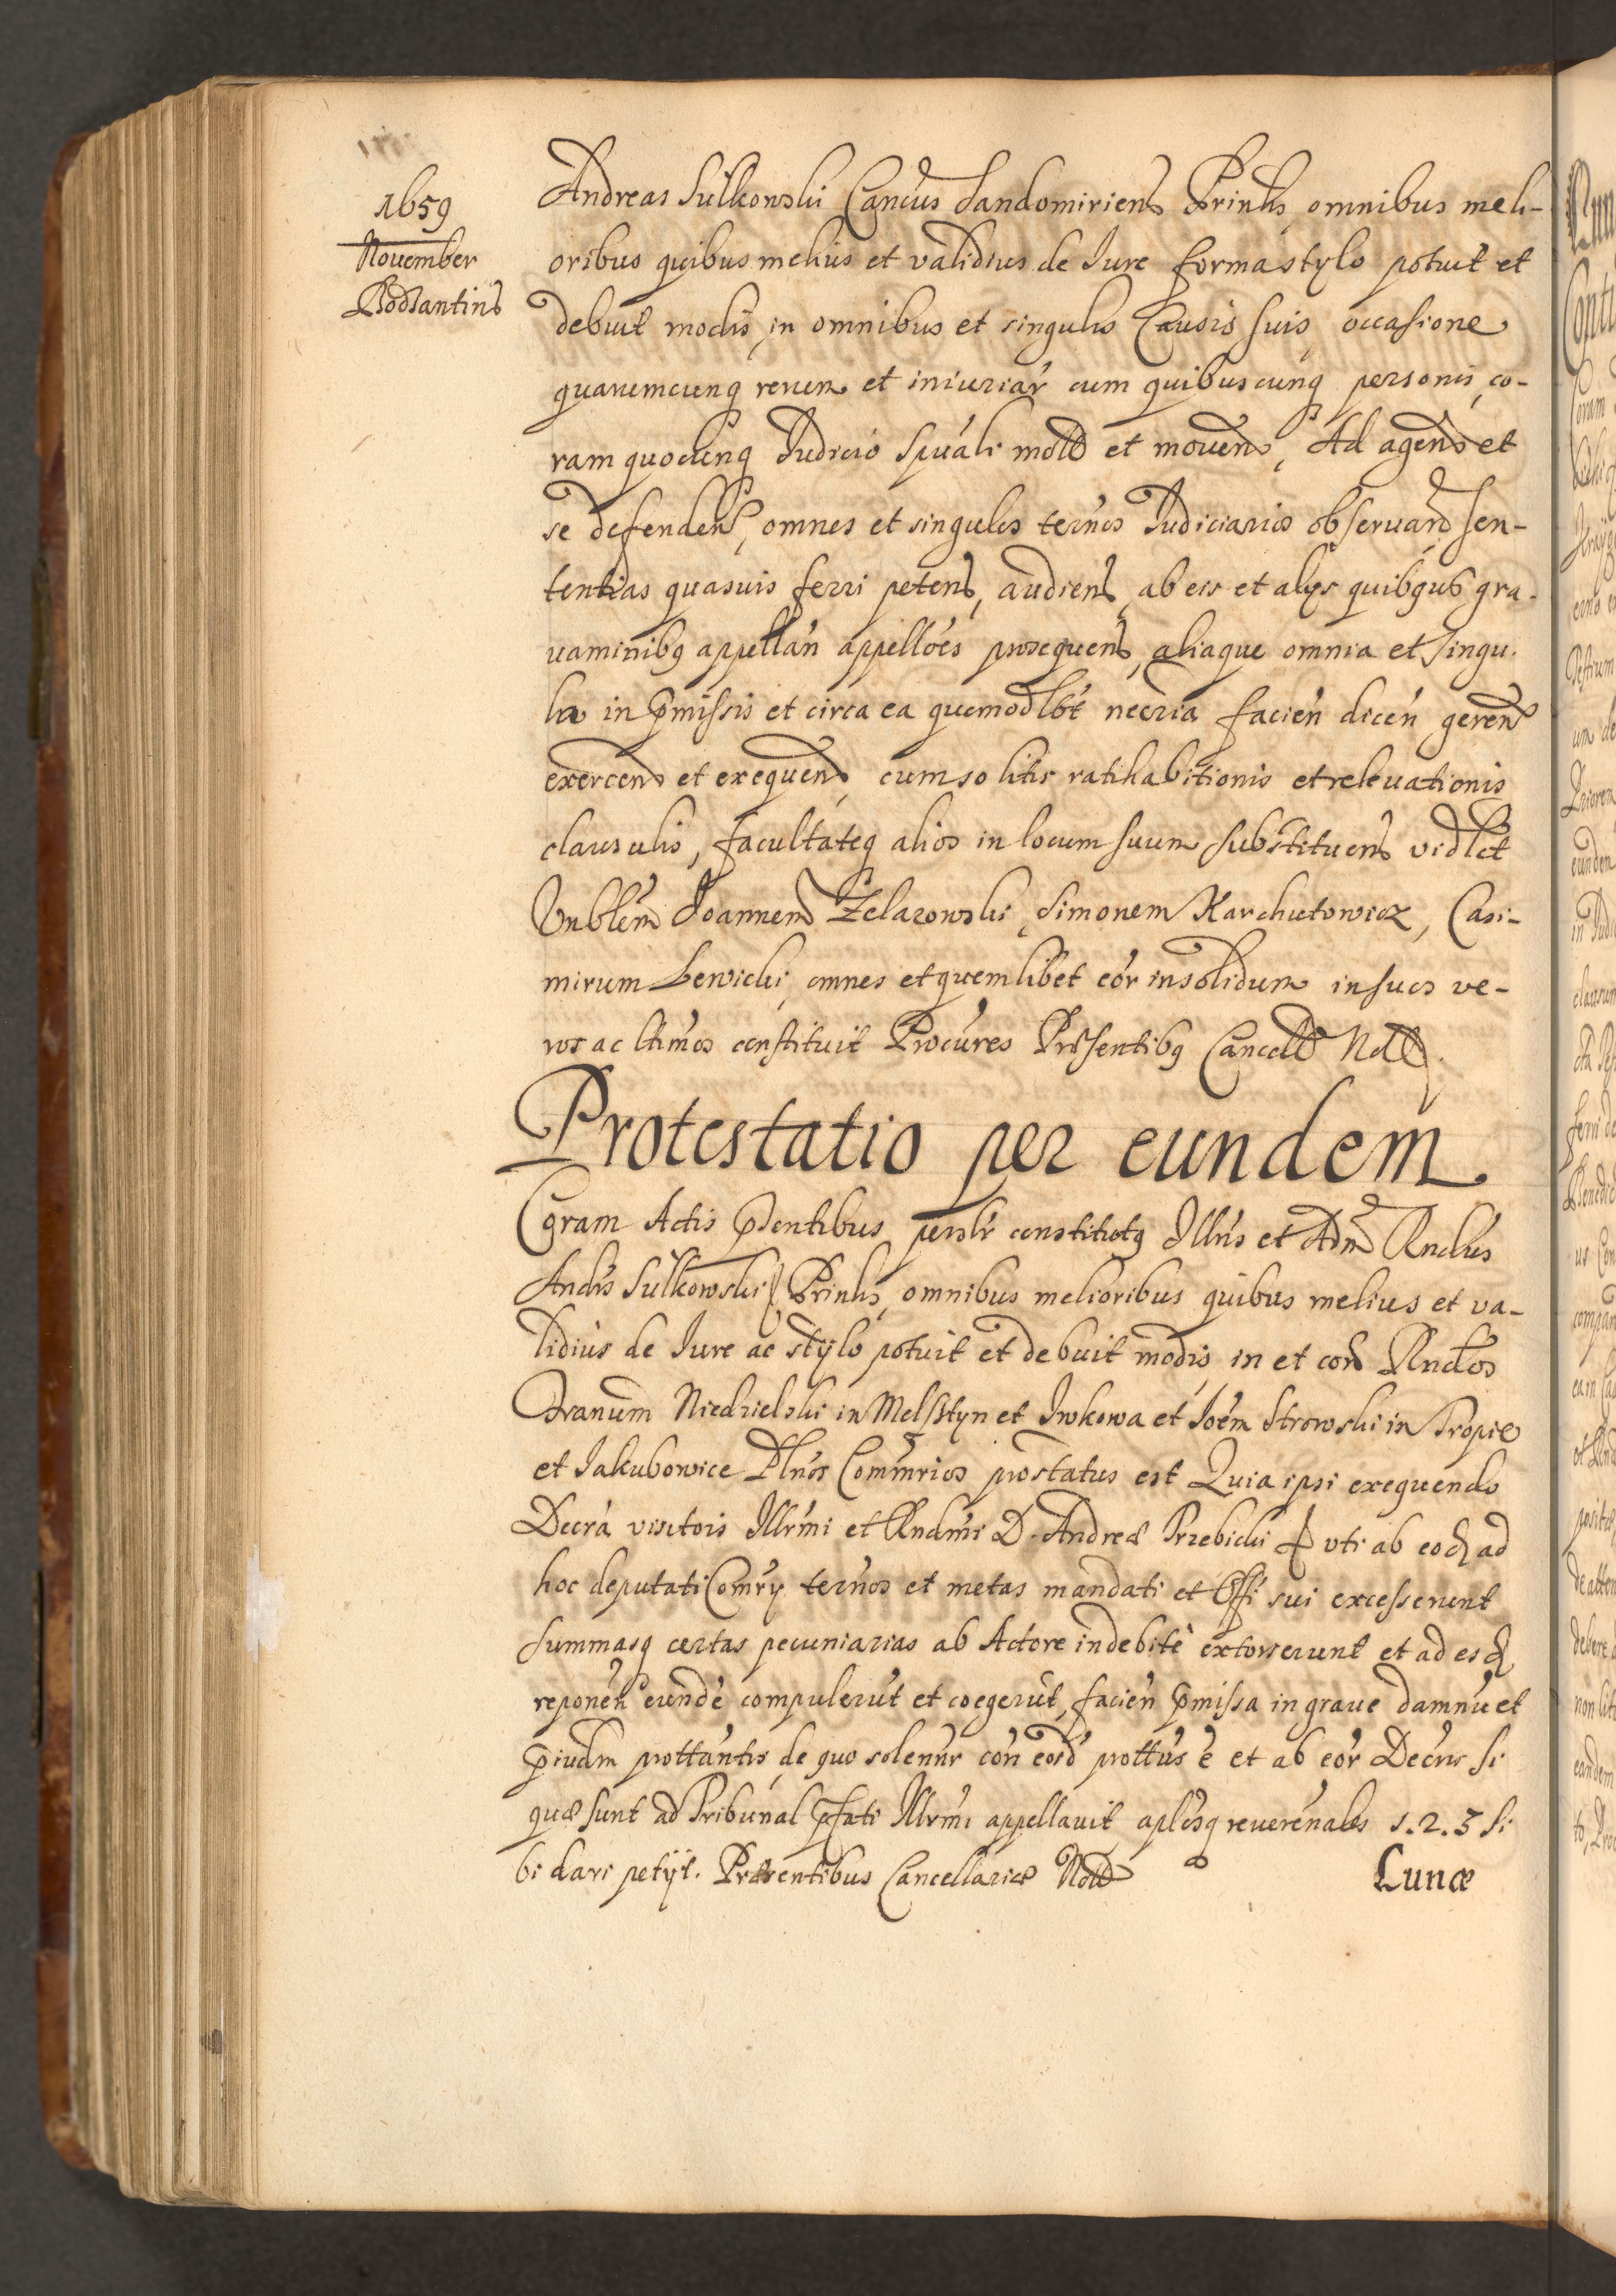 1659
November
Bodzantins
Andreas Sulkowski Cancus Sandomiriens Prinlis, omnibus meli-
oribus quibus melius et validius de Iure forma stylo potuit et
debuit modis, in omnibus et singulis Causis suis, occasione
quarumcunq rerum et iniuriar cum quibuscunq personis, co-
ram quocunq Iudicio Spuali mot et mouend, Ad agend et
se defendend, omnes et singulos ternos Iudiciarios obseruand sen-
tentias quasuis ferri petend, audiend, ab eis et alys quibqus gra-
uaminibq appellan appelloes prosequend, aliaque omnia et singu-
la in pmissis et circa ea quomodlbt necria facien dicen gerend
exercend et exequend, cum solitis ratihabitionis et releuationis
clausulis, facultateq alios in locum suum substituend vidlct
Vnblem Joannem Zelazowski, Simonem Karchutowicz, Casi-
mirum Lewicki, omnes et quemlibet eor in solidum in suos ve-
ros ac ltimos constituit Procures Prsentibq Cancell Not
Protestatio per eundem.
Coram Actis pdentibus persolr constitutq Illris et Adm Rndus
Andrs Sulkowski Prinlis, omnibus melioribus quibus melius et va-
lidius de Iure ac stylo potuit et debuit modis, in et con Rndos
Vranum Niedzielski in Melsztyn et Iwkowa et Ioem Strowski in Tropie
et Iakubowice Plnos Commrios prostatus est Quia ipsi exequendo
Decra visitois Illrmi et Rndmi D. Andreæ Trzebicki vti ab eod ad
hoc deputati Comry ternos et metas mandati et Offi sui excesserunt
Summasq certas pecuniarias ab Actore indebite extorserunt et ad es
reponen eunde compulerut et coegerut, facien pmissa in graue damnu et
piudm prottantis, de quo solenr con eosd prottus e et ab eor Decris si
quæ sunt ad Tribunal pfati Illrmi appellauit aplosq reuerenales 1. 2. 3 si
bi dari petijt. Præsentibus Cancellariæ Not
Lunæ